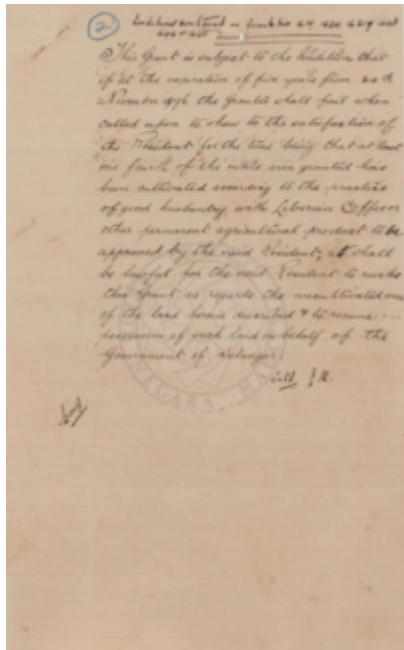 2
Conditions contained in Grants Nos
This Grant is subject to the condition that
if at the expiration of five years from 20th
November 1896 the Grantee shall fail when
called upon to show to the satisfaction of
the Resident for the time being that at least
one fourth of the entire area granted has
been cultivated according to the practice
of good husbandry, with Liberian Coffee or
other permanent agricultural product to be
approved by the said Resident, it shall
be lawful for the said Resident to revoke
this Grant as regards the uncultivated area
of the land herein described & to resume
possession of such land on behalf of the
Government of Selangor.
NEGARA